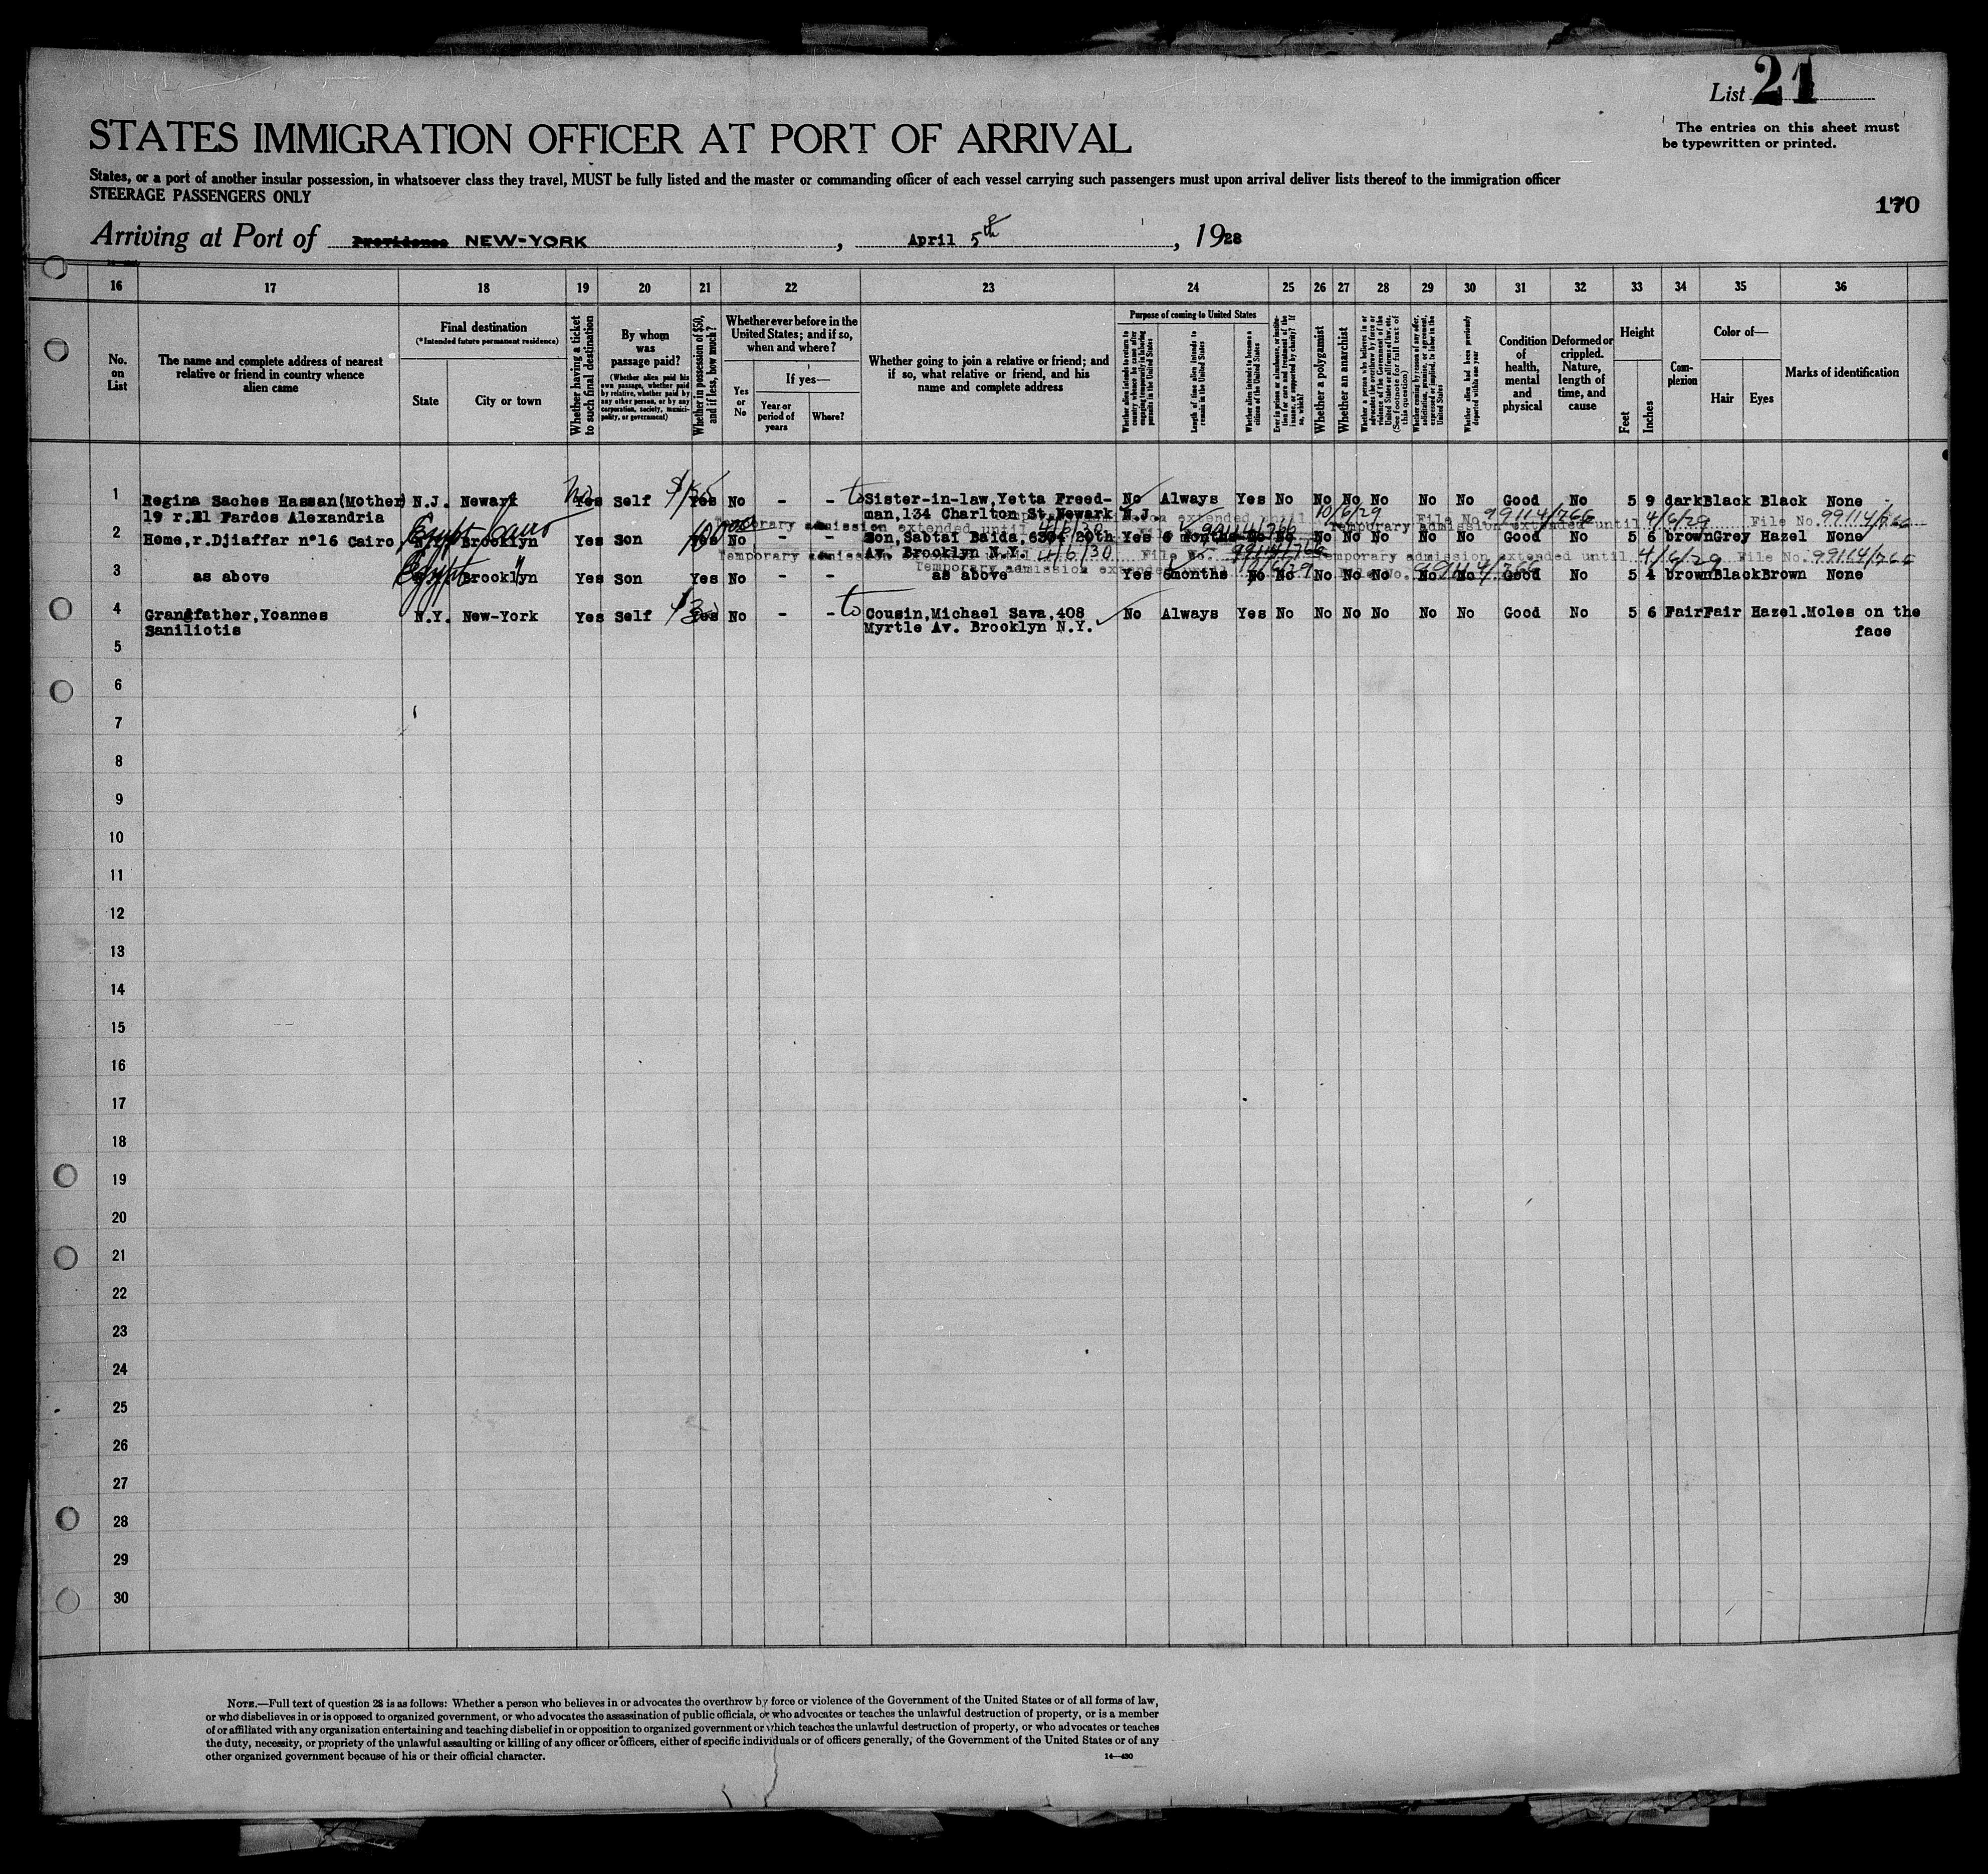 List 21
STATES IMMIGRATION OFFICER AT PORT OF ARRIVAL
The entries on this sheet must
be typewritten or printed.
States, or a port of another insular possession, in whatsoever class they travel, MUST be fully listed and the master or commanding officer of each vessel carrying such passengers must upon arrival deliver lists thereof to the immigration officer
STEERAGE PASSENGERS ONLY
170
Arriving at Port of Providence NEW-YORK, April 5th, 1928
16 17 18 19 20 21 22 23 24 25 26 27 28 29 30 31 32 33 34 35 36
No. on List
The name and complete address of nearest relative or friend in country whence alien came
Final destination
(*Intended future permanent residence)
State
City or town
Whether having a ticket to such final destination
By whom was passage paid?
(Whether alien paid his own passage, whether paid by relative, whether paid by any other person, or by any corporation, society, municipality, or government)
Whether in possession of $50, and if less, how much?
Whether ever before in the United States; and if so, when and where?
Yes or No
If yes—
Year or period of years
Where?
Whether going to join a relative or friend; and if so, what relative or friend, and his name and complete address
Purpose of coming to United States
Whether alien intends to return to country whence he came after engaging temporarily in laboring pursuits in the United States
Length of time alien intends to remain in the United States
Whether alien intends to become a citizen of the United States
Ever in prison or almshouse, or institution for care and treatment of the insane, or supported by charity? If so, which?
Whether a polygamist
Whether an anarchist
Whether coming by reason of any offer, solicitation, promise, or agreement, expressed or implied, to labor in the United States
Whether alien had been previously deported within one year
Condition of health, mental and physical
Deformed or crippled. Nature, length of time, and cause
Height
Feet
Inches
Complexion
Color of—
Hair
Eyes
Marks of identification
1 Regina Saches Hassan(Mother) N.J. Newark No Yes Self Yes No - - to Sister-in-law,Yetta Freed- No Always Yes No No No No No No Good No 5 9 dark Black Black None
19 r.El Fardos Alexandria man,134 Charlton St.Newark N.J.
Temporary admission extended until 10/6/29 File No. 99114/766
Temporary admission extended until 4/6/30 File No. 99114/766
Temporary admission extended until 4/6/29 File No. 99114/766
2 Home,r.Djiaffar n°16 Cairo Egypt Cairo Brooklyn Yes Son 100 Yes No - - Son,Sabtai Baida,6304 20th Yes 6 months No No No No No No No Good No 5 6 brown Grey Hazel None
Av. Brooklyn N.Y.
Temporary admission extended until 4/6/30 File No. 99114/766
Temporary admission extended until 4/6/29 File No. 99114/766
Temporary admission extended until 10/6/29 File No. 99114/766
3 as above Egypt Brooklyn Yes Son Yes No - - as above Yes 6months No No No No No No No Good No 5 4 brown Black Brown None
4 Grandfather,Yoannes N.Y. New-York Yes Self Yes No - - to Cousin,Michael Sava,408 No Always Yes No No No No No No Good No 5 6 Fair Fair Hazel.Moles on the
Saniliotis Myrtle Av. Brooklyn N.Y. face
5
6
7
8
9
10
11
12
13
14
15
16
17
18
19
20
21
22
23
24
25
26
27
28
29
30
NOTE.—Full text of question 28 is as follows: Whether a person who believes in or advocates the overthrow by force or violence of the Government of the United States or of all forms of law,
or who disbelieves in or is opposed to organized government, or who advocates the assassination of public officials, or who advocates or teaches the unlawful destruction of property, or is a member
of or affiliated with any organization entertaining and teaching disbelief in or opposition to organized government or which teaches the unlawful destruction of property, or who advocates or teaches
the duty, necessity, or propriety of the unlawful assaulting or killing of any officer or officers, either of specific individuals or of officers generally, of the Government of the United States or of any
other organized government because of his or their official character.
14—430